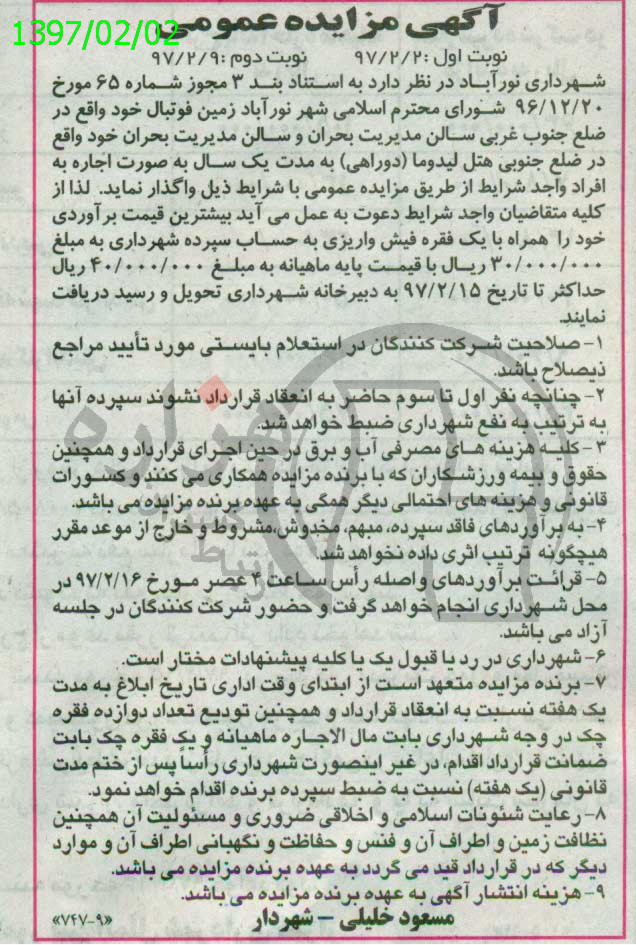 آگهی مزایده عمومی
1397/02/02
نوبت اول: ۹۷/۲/۲ نوبت دوم: ۹۷/۲/۹
شهرداری نورآباد در نظر دارد به استناد بند ۳ مجوز شماره ۶۵ مورخ
۹۶/۱۲/۲۰ شورای محترم اسلامی شهر نورآباد زمین فوتبال خود واقع در
ضلع جنوب غربی سالن مدیریت بحران و سالن مدیریت بحران خود واقع
در ضلع جنوبی هتل لیدوما (دوراهی) به مدت یک سال به صورت اجاره به
افراد واجد شرایط از طریق مزایده عمومی با شرایط ذیل واگذار نماید. لذا از
کلیه متقاضیان واجد شرایط دعوت به عمل می آید بیشترین قیمت برآوردی
خود را همراه با یک فقره فیش واریزی به حساب سپرده شهرداری به مبلغ
۳۰/۰۰۰/۰۰۰ ریال با قیمت پایه ماهیانه به مبلغ ۴۰/۰۰۰/۰۰۰ ریال
حداکثر تا تاریخ ۹۷/۲/۱۵ به دبیرخانه شهرداری تحویل و رسید دریافت
نمایند.
۱- صلاحیت شرکت کنندگان در استعلام بایستی مورد تأیید مراجع
ذیصلاح باشد.
۲- چنانچه نفر اول تا سوم حاضر به انعقاد قرارداد نشوند سپرده آنها
به ترتیب به نفع شهرداری ضبط خواهد شد.
۳- کلیه هزینه های مصرفی آب و برق در حین اجرای قرارداد و همچنین
حقوق و بیمه ورزشکاران که با برنده مزایده همکاری می کنند و کسورات
قانونی و هزینه های احتمالی دیگر همگی به عهده برنده مزایده می باشد.
۴- به برآوردهای فاقد سپرده، مبهم، مخدوش،مشروط و خارج از موعد مقرر
هیچگونه ترتیب اثری داده نخواهد شد.
۵- قرائت برآوردهای واصله رأس ساعت ۴ عصر مورخ ۹۷/۲/۱۶ در
محل شهرداری انجام خواهد گرفت و حضور شرکت کنندگان در جلسه
آزاد می باشد.
۶- شهرداری در رد یا قبول یک یا کلیه پیشنهادات مختار است.
۷- برنده مزایده متعهد است از ابتدای وقت اداری تاریخ ابلاغ به مدت
یک هفته نسبت به انعقاد قرارداد و همچنین تودیع تعداد دوازده فقره
چک در وجه شهرداری بابت مال الاجاره ماهیانه و یک فقره چک بابت
ضمانت قرارداد اقدام، در غیر اینصورت شهرداری رأساً پس از ختم مدت
قانونی (یک هفته) نسبت به ضبط سپرده برنده اقدام خواهد نمود.
۸- رعایت شئونات اسلامی و اخلاقی ضروری و مسئولیت آن همچنین
نظافت زمین و اطراف آن و فنس و حفاظت و نگهبانی اطراف آن و موارد
دیگر که در قرارداد قید می گردد به عهده برنده مزایده می باشد.
۹- هزینه انتشار آگهی به عهده برنده مزایده می باشد.
مسعود خلیلی - شهردار «۷۴۷-۹»
هزاره